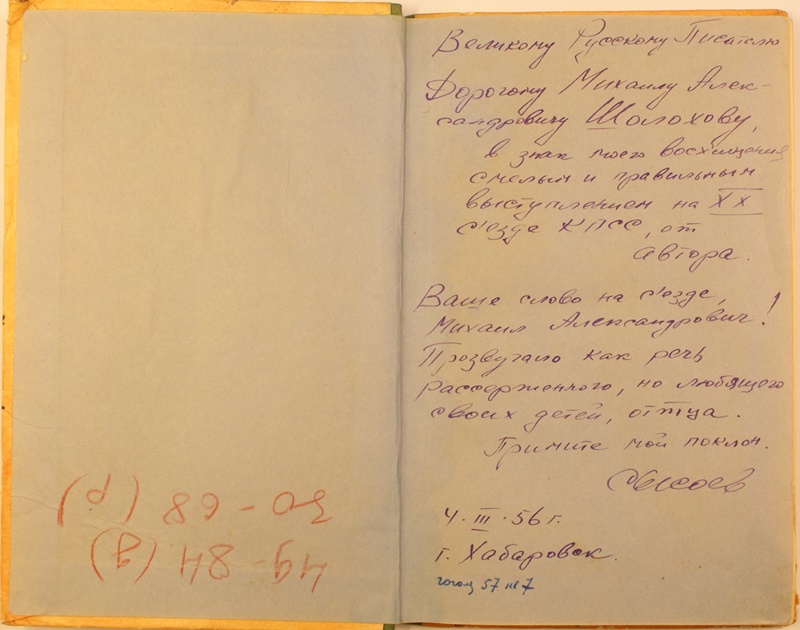 Великому Русскому Писателю
Дорогому Михаилу Алек-
сандровичу Шолохову,
в знак моего восхищения
смелым и правильным
выступлением на XX
с'езде КПСС, от
автора.
Ваше слово на с'езде,
Михаил Александрович!
Прозвучало как речь
рассерженного, но любящего
своих детей, отца.
Примите мой поклон.
Сысоев
4·III·56 г.
г. Хабаровск.
57 кв 7
49-84 (д)
30-68 (р)